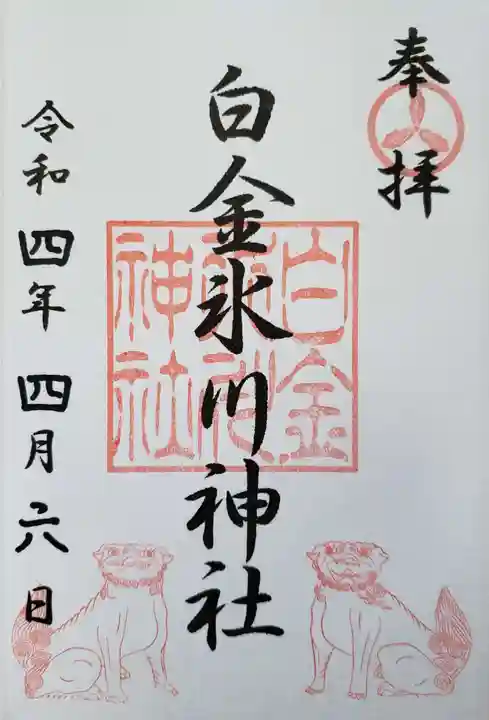 奉拝
白金氷川神社
白金
氷川
神社
令和四年四月六日